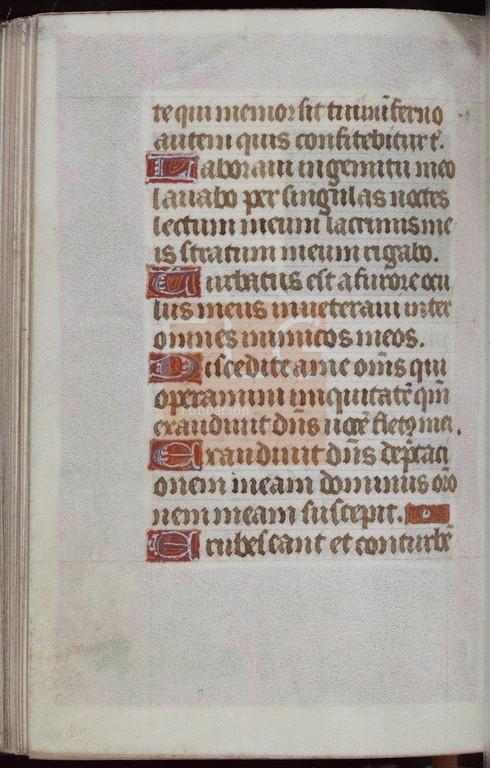 te qui memor sit tui in īferno
autem quis confitebitur t'.
Laboraui in gemitu meo
lauabo per singulas noctes
lectum meum lacrimis me
is stratum meum rigabo.
Turbatus est a furore ocu
lus meus inueteraui inter
omnes inimicos meos.
Discedite a me om̄s qui
operamini iniquitatē qm̄
exaudiuit dn̄s uocē fletꝰ mei.
Exaudiuit dn̄s dep̄cati
onem meam dominus oro
nem meam suscepit.
Erubescant et conturbē